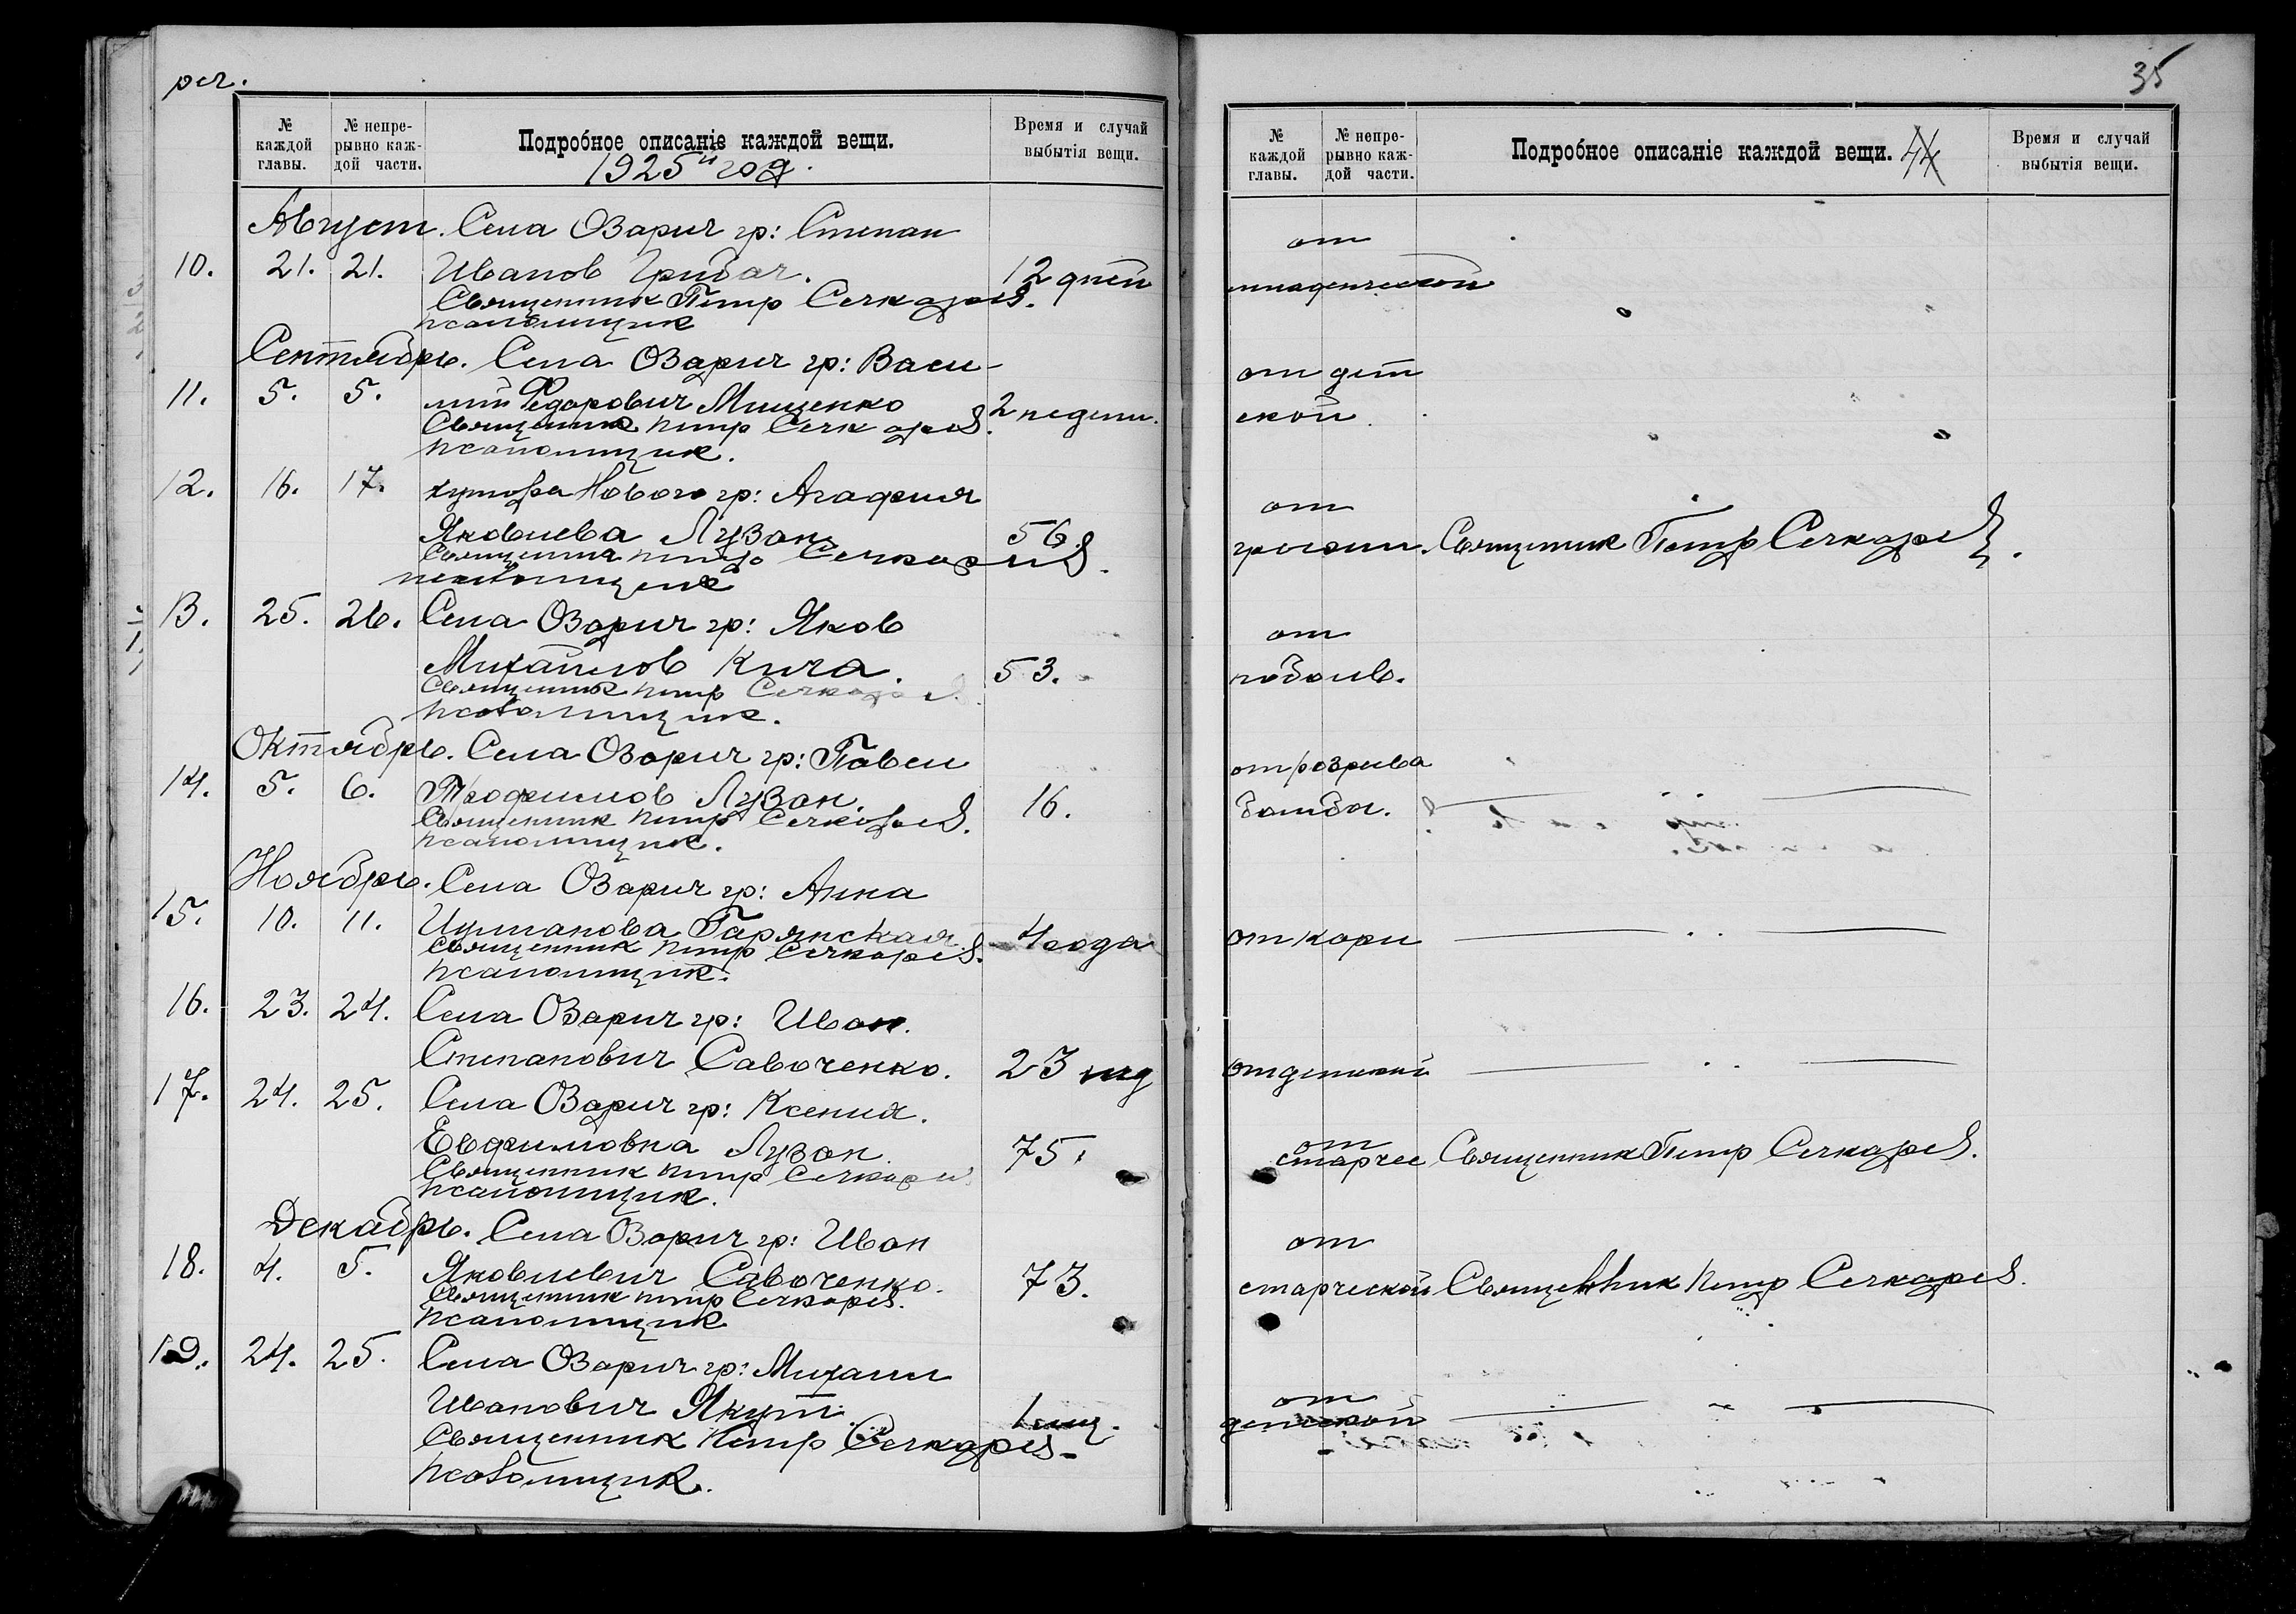 рег.
№ каждой главы.
№ непрерывно каждой части.
Подробное описаніе каждой вещи.
Время и случай выбытія вещи.
1925й год.
Август. Села Озарич гр: Степан
10. 21. 21. Иванов Грибач. 12 дней
Священник Петр Секарев.
псаломщик
Сентябрь. Села Озарич гр: Васи-
11. 5. 5. лий Федорович Мищенко 2 недели.
Священник Петр Секарев.
псаломщик.
12. 16. 17. хутора Нового гр: Агафия
Яковлева Лузан 56.
Священник Петр Секарев.
псаломщик
13. 25. 26. Села Озарич гр: Яков
Михайлов Кича. 53.
Священник Петр Секарев.
псаломщик.
Октябрь. Села Озарич гр: Павел
14. 5. 6. Трофимов Лузан. 16.
Священник Петр Секарев.
псаломщик.
Ноябрь. Села Озарич гр: Анна
15. 10. 11. Гарянская 4 года
Священник Петр Секарев.
псаломщик.
16. 23. 24. Села Озарич гр: Иван.
Степанович Савоченко. 23
17. 24. 25. Села Озарич гр: Ксения.
Евфимовна Лузан. 75.
Священник Петр Секарев
псаломщик.
Декабрь. Села Озарич гр: Иван
18. 4. 5. Яковлевич Савоченко. 73.
Священник Петр Секарев.
псаломщик
19. 24. 25. Села Озарич гр: Михаил
Иванович Якут. 1 мц.
Священник Петр Секарев.
псаломщик.
35
№ каждой главы.
№ непрерывно каждой части.
Подробное описаніе каждой вещи. 44
Время и случай выбытія вещи.
от
младенческой
от дет
ской
от
грыжи. Священник Петр Секарев.
от
побоев.
от розрива
бомбы.
от кори
от детской
от
старчес Священник Петр Секарев.
от
старческой Священник Петр Секарев.
от
детской